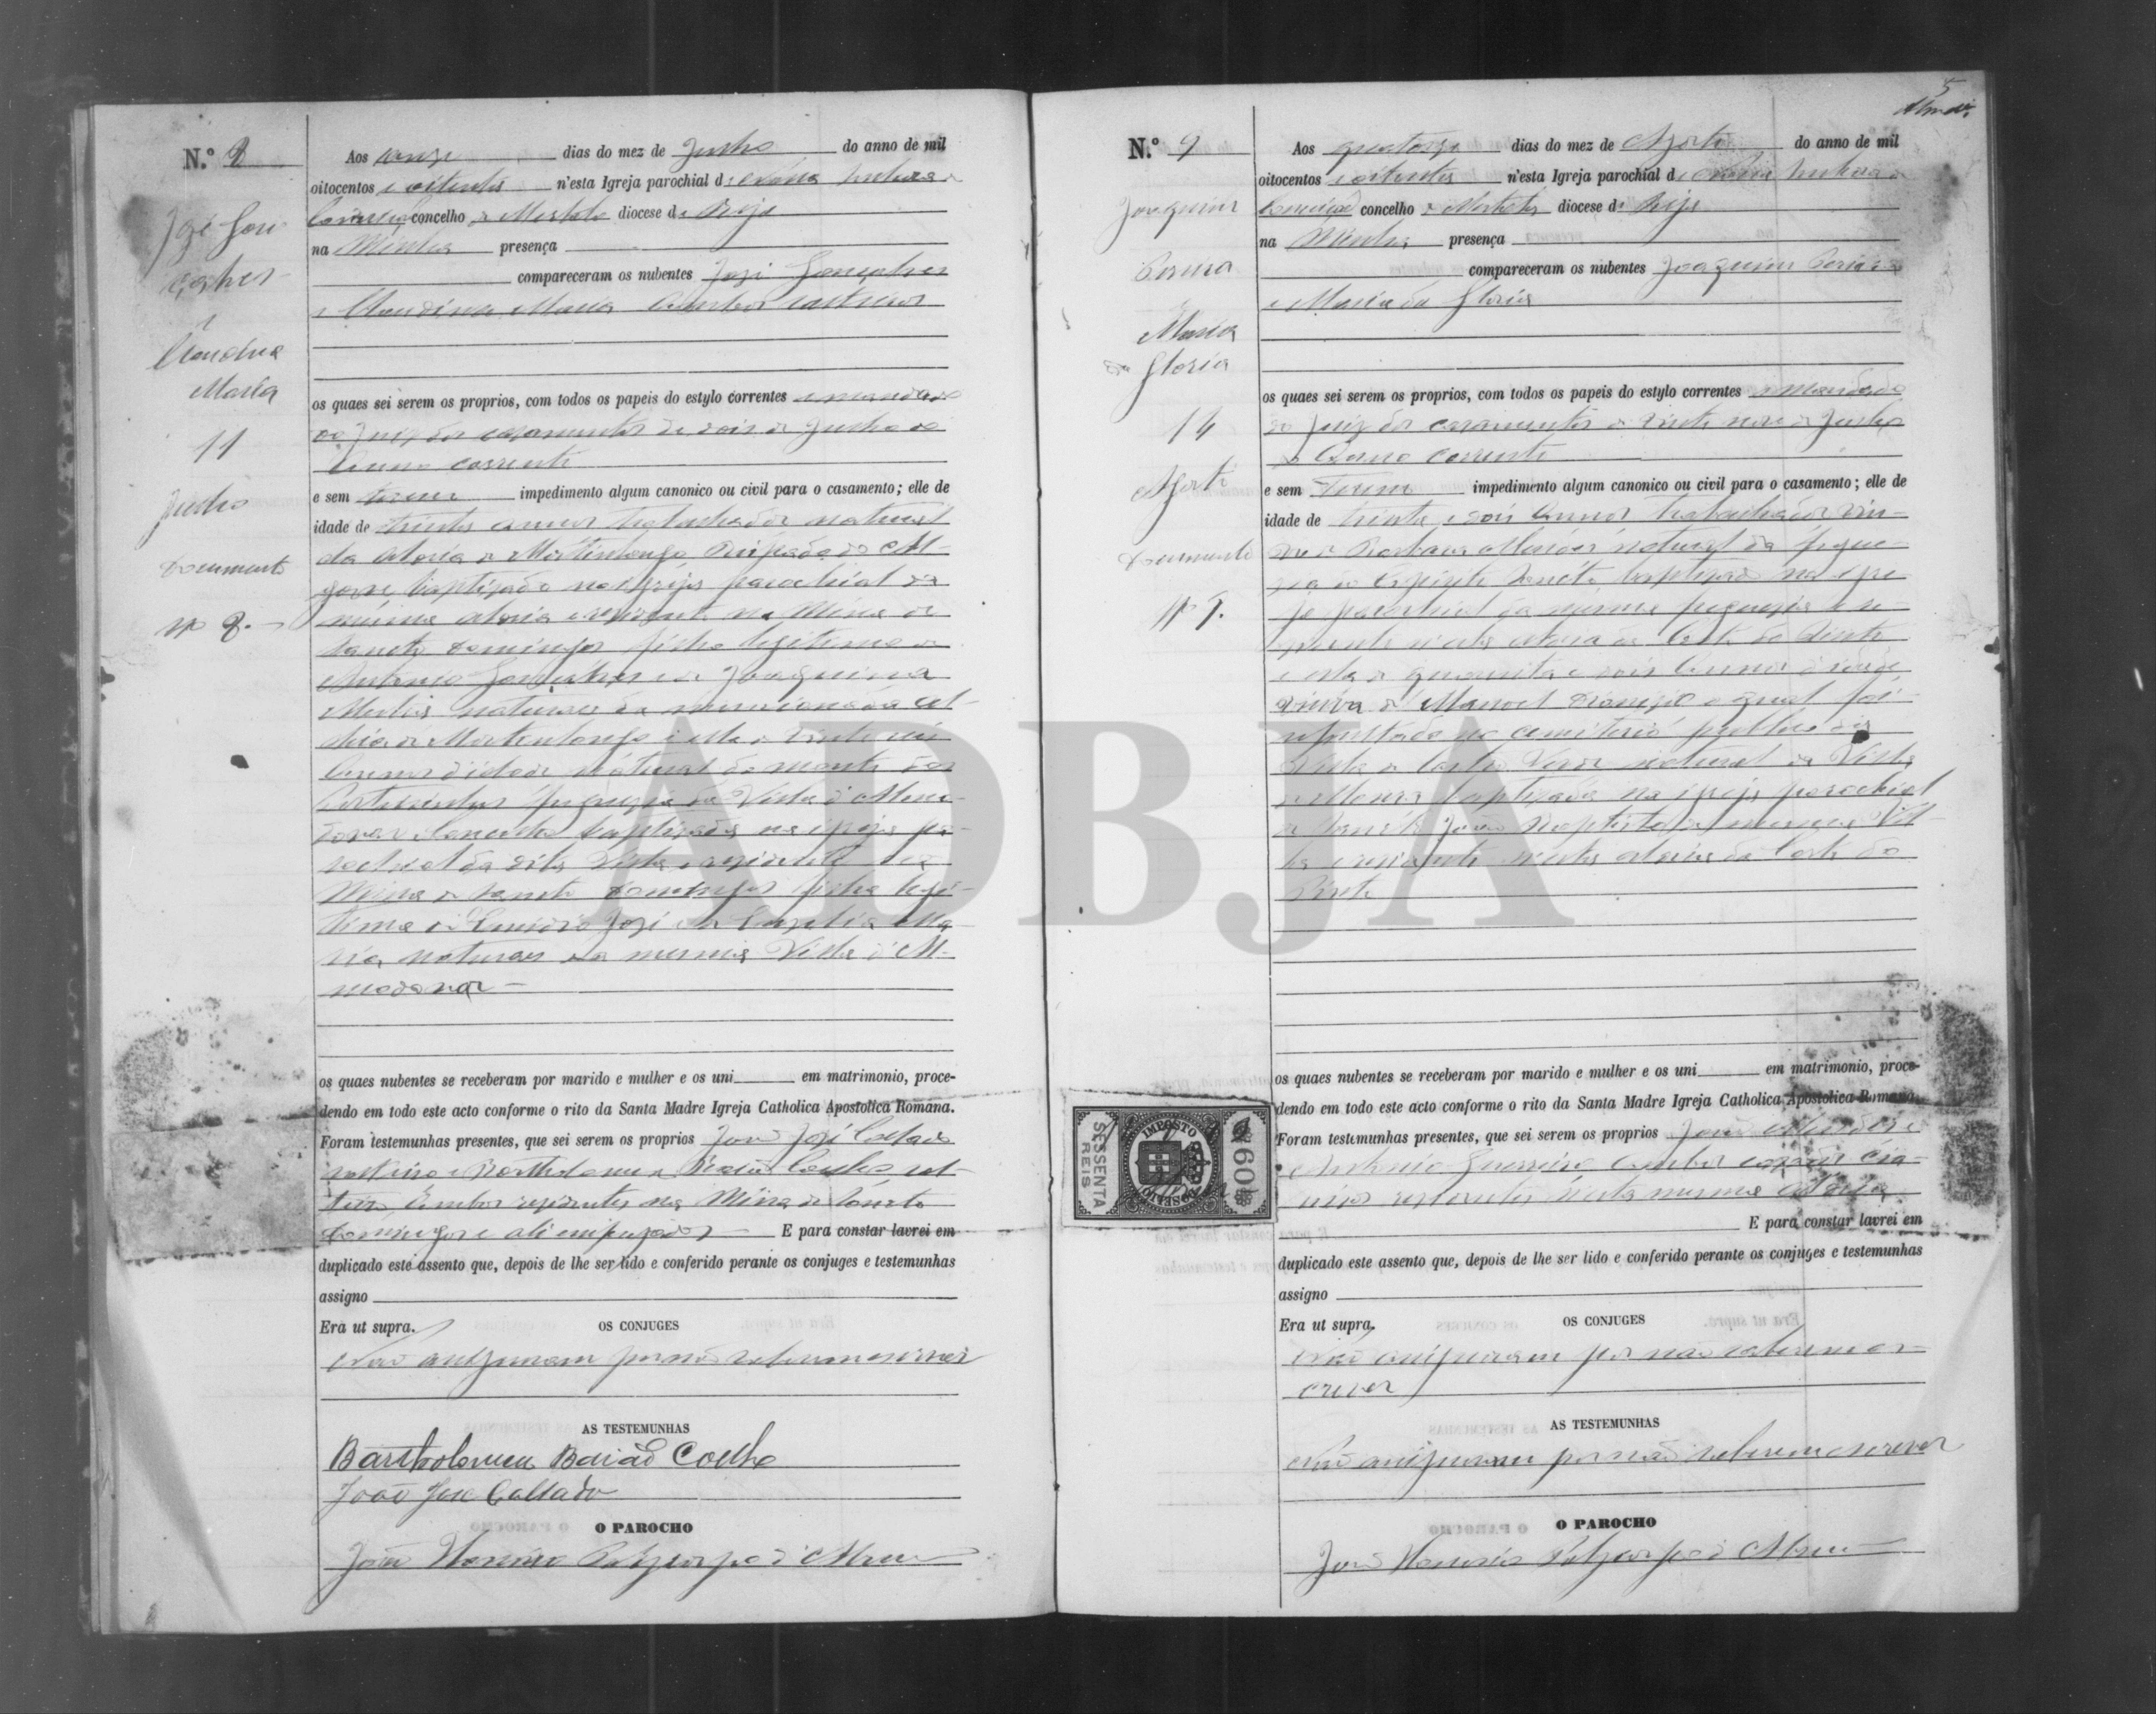 N.º 8
José Gon
çalves
e
Claudina
Maria
11
Junho
Documento
Nº 8.
Aos onze dias do mez de Junho do anno de mil
oitocentos e oitenta n'esta Igreja parochial de Nossa Senhora da
Conceição concelho de Mertola diocese de Beja
na Minha presença
compareceram os nubentes José Gonçalves
e Claudina Maria ambos solteiros
os quaes sei serem os proprios, com todos os papeis do estylo correntes e mandado
do Juiz dos casamentos de dois de Junho do
Anno corrente
e sem terem impedimento algum canonico ou civil para o casamento; elle de
idade de trinta annos trabalhador natural
da aldeia de Martinlongo Bispado do Al-
garve baptizado na igreja parochial da
mesma aldeia e residente na Mina de
Sancto Domingos filho legitimo de
Antonio Gonçalves e de Joaquina
naturaes da mencionada al-
deia de Martinlongo e ella de vinte
annos d'idade natural do monte dos
freguezia da Villa d'Almo-
dovar baptizada na igreja pa-
rochial da dita Villa e residente na
Mina de Sancto Domingos filha legi-
tima de José e de Ma-
ria naturaes da mesma Villa d'Al-
modovar
os quaes nubentes se receberam por marido e mulher e os uni em matrimonio, proce-
dendo em todo este acto conforme o rito da Santa Madre Igreja Catholica Apostolica Romana.
Foram testemunhas presentes, que sei serem os proprios João José Collado
solteiro e Bartholomeu Baião Coelho sol-
teiro, ambos residentes na Mina de Sancto
Domingos e ali empregados E para constar lavrei em
duplicado este assento que, depois de lhe ser lido e conferido perante os conjuges e testemunhas
assigno
Era ut supra.
OS CONJUGES
Não assignaram por não saberem escrever
AS TESTEMUNHAS
Bartholomeu Baião Coelho
João José Collado
O PAROCHO
João Honorio Polycarpo d'Abreu
5
N.º 9
Joaquim
Pereira
Maria
da Gloria
14
Agosto
Documento
Nº 9.
Aos quatorze dias do mez de Agosto do anno de mil
oitocentos e oitenta n'esta Igreja parochial de Nossa Senhora da
Conceição concelho de Mertola diocese de Beja
na Minha presença
compareceram os nubentes Joaquim Pereira
e Maria da Gloria
os quaes sei serem os proprios, com todos os papeis do estylo correntes e mandado
do Juiz dos casamentos de vinte nove de Junho
do Anno corrente
e sem terem impedimento algum canonico ou civil para o casamento; elle de
idade de trinta e dois annos trabalhador viu-
vo de Barbara natural da fregue-
zia do Espirito Sancto baptizado na igre
ja parochial da mesma freguezia e re
zidente n'esta aldeia da Corte do Pinto
e ella de quarenta e dois annos d'idade
viuva de Manoel o qual foi
sepultado no cemiterio publico da
Villa de Castro Verde natural da Villa
de Moura baptizada na igreja parochial
de Sancto João Baptista da mesma Vil-
la e residente n'esta aldeia da Corte do
Pinto
os quaes nubentes se receberam por marido e mulher e os uni em matrimonio, proce-
dendo em todo este acto conforme o rito da Santa Madre Igreja Catholica Apostolica Romana.
Foram testemunhas presentes, que sei serem os proprios João
Antonio Guerreiro ambos
residentes n'esta mesma aldeia
E para constar lavrei em
duplicado este assento que, depois de lhe ser lido e conferido perante os conjuges e testemunhas
assigno
Era ut supra.
OS CONJUGES
Não assignaram por não saberem es-
crever
AS TESTEMUNHAS
Não assignaram por não saberem escrever
O PAROCHO
João Honorio Polycarpo d'Abreu
IMPOSTO
DO SELLO
SESSENTA
REIS
60
ADBJA